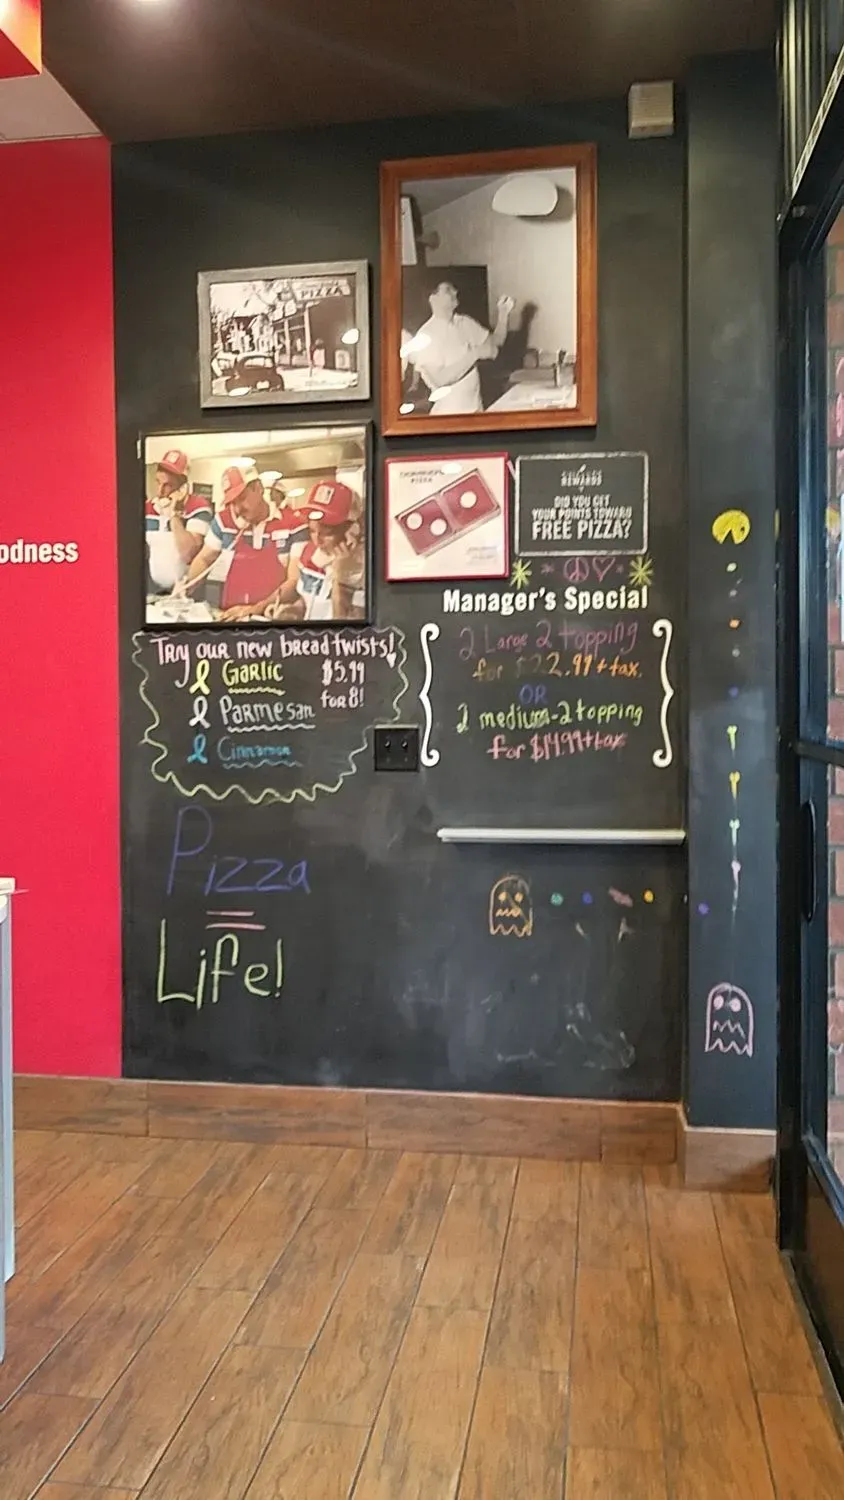 PIZZA
odness
DOMINO'S
PIZZA
REWARDS
DID YOU GET
YOUR POINTS TOWARD
FREE PIZZA?
Manager's Special
2 Large 2 topping
for $22.99+tax.
OR
2 medium-2 topping
for $14.99+tax
Try our new bread twists!
Garlic $5.99
Parmesan for 8!
Cinnamon
Pizza
=
Life!